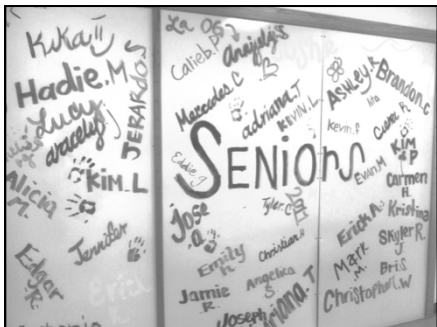 Kika
Hadie.M
Lucy
aracely
JERARDOS
Alicia
M.
KiM.L
Jennifer
Edgar
R.
Erick
La OG
Calieb.P
Anayely.S
B
Mercedes.C
adriana.T
KEVIN.L
Eddie g
SENiORS
2011
Jose
.a
Tyler.C
Emily
h
Christian H
Jamie
R.
Angelica
S.
Joseph
Adriana.T
ASHLEY.R
Brandon.C
Kevin.f
Cuene R.
KiM
P
Evan.M
CARMEN
H.
Kristina
Erick A.
Skyler R.
J
Mark
M.
Bri S
Christopher.W